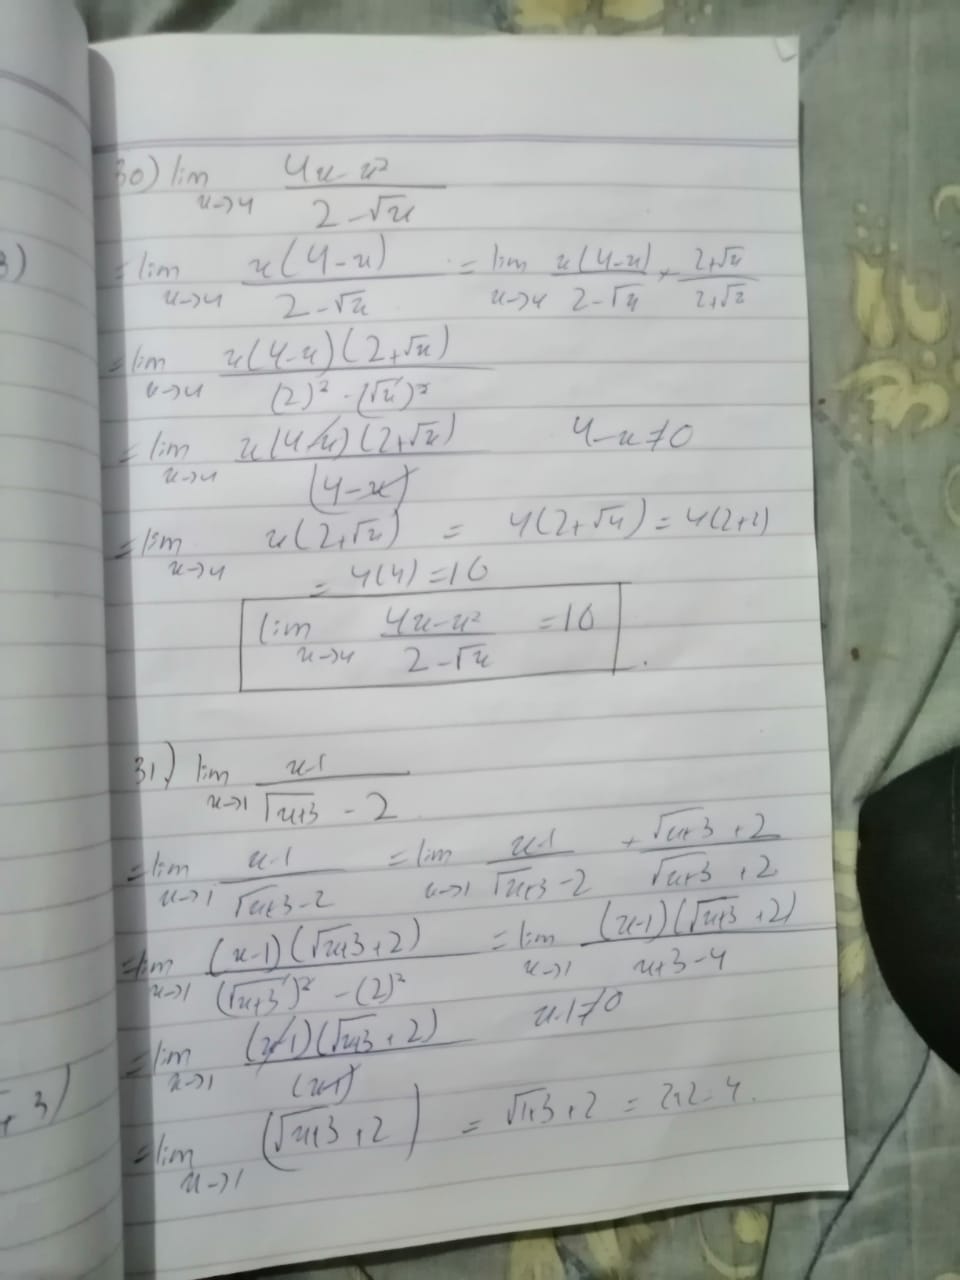 30) lim x→4 (4x-x²)/(2-√x)
= lim x→4 x(4-x)/(2-√x) = lim x→4 x(4-x)/(2-√x) × (2+√x)/(2+√x)
= lim x→4 x(4-x)(2+√x)/((2)²-(√x)²)
= lim x→4 x(4-x)(2+√x)/(4-x) 4-x≠0
= lim x→4 x(2+√x) = 4(2+√4) = 4(2+2)
= 4(4) = 16
lim x→4 (4x-x²)/(2-√x) = 16
31) lim x→1 (x-1)/(√(x+3) - 2)
= lim x→1 (x-1)/(√(x+3)-2) = lim x→1 (x-1)/(√(x+3)-2) × (√(x+3)+2)/(√(x+3)+2)
= lim x→1 (x-1)(√(x+3)+2)/((√(x+3))²-(2)²) = lim x→1 (x-1)(√(x+3)+2)/(x+3-4)
= lim x→1 (x-1)(√(x+3)+2)/(x-1) x-1≠0
= lim x→1 (√(x+3)+2) = √(1+3)+2 = 2+2=4.